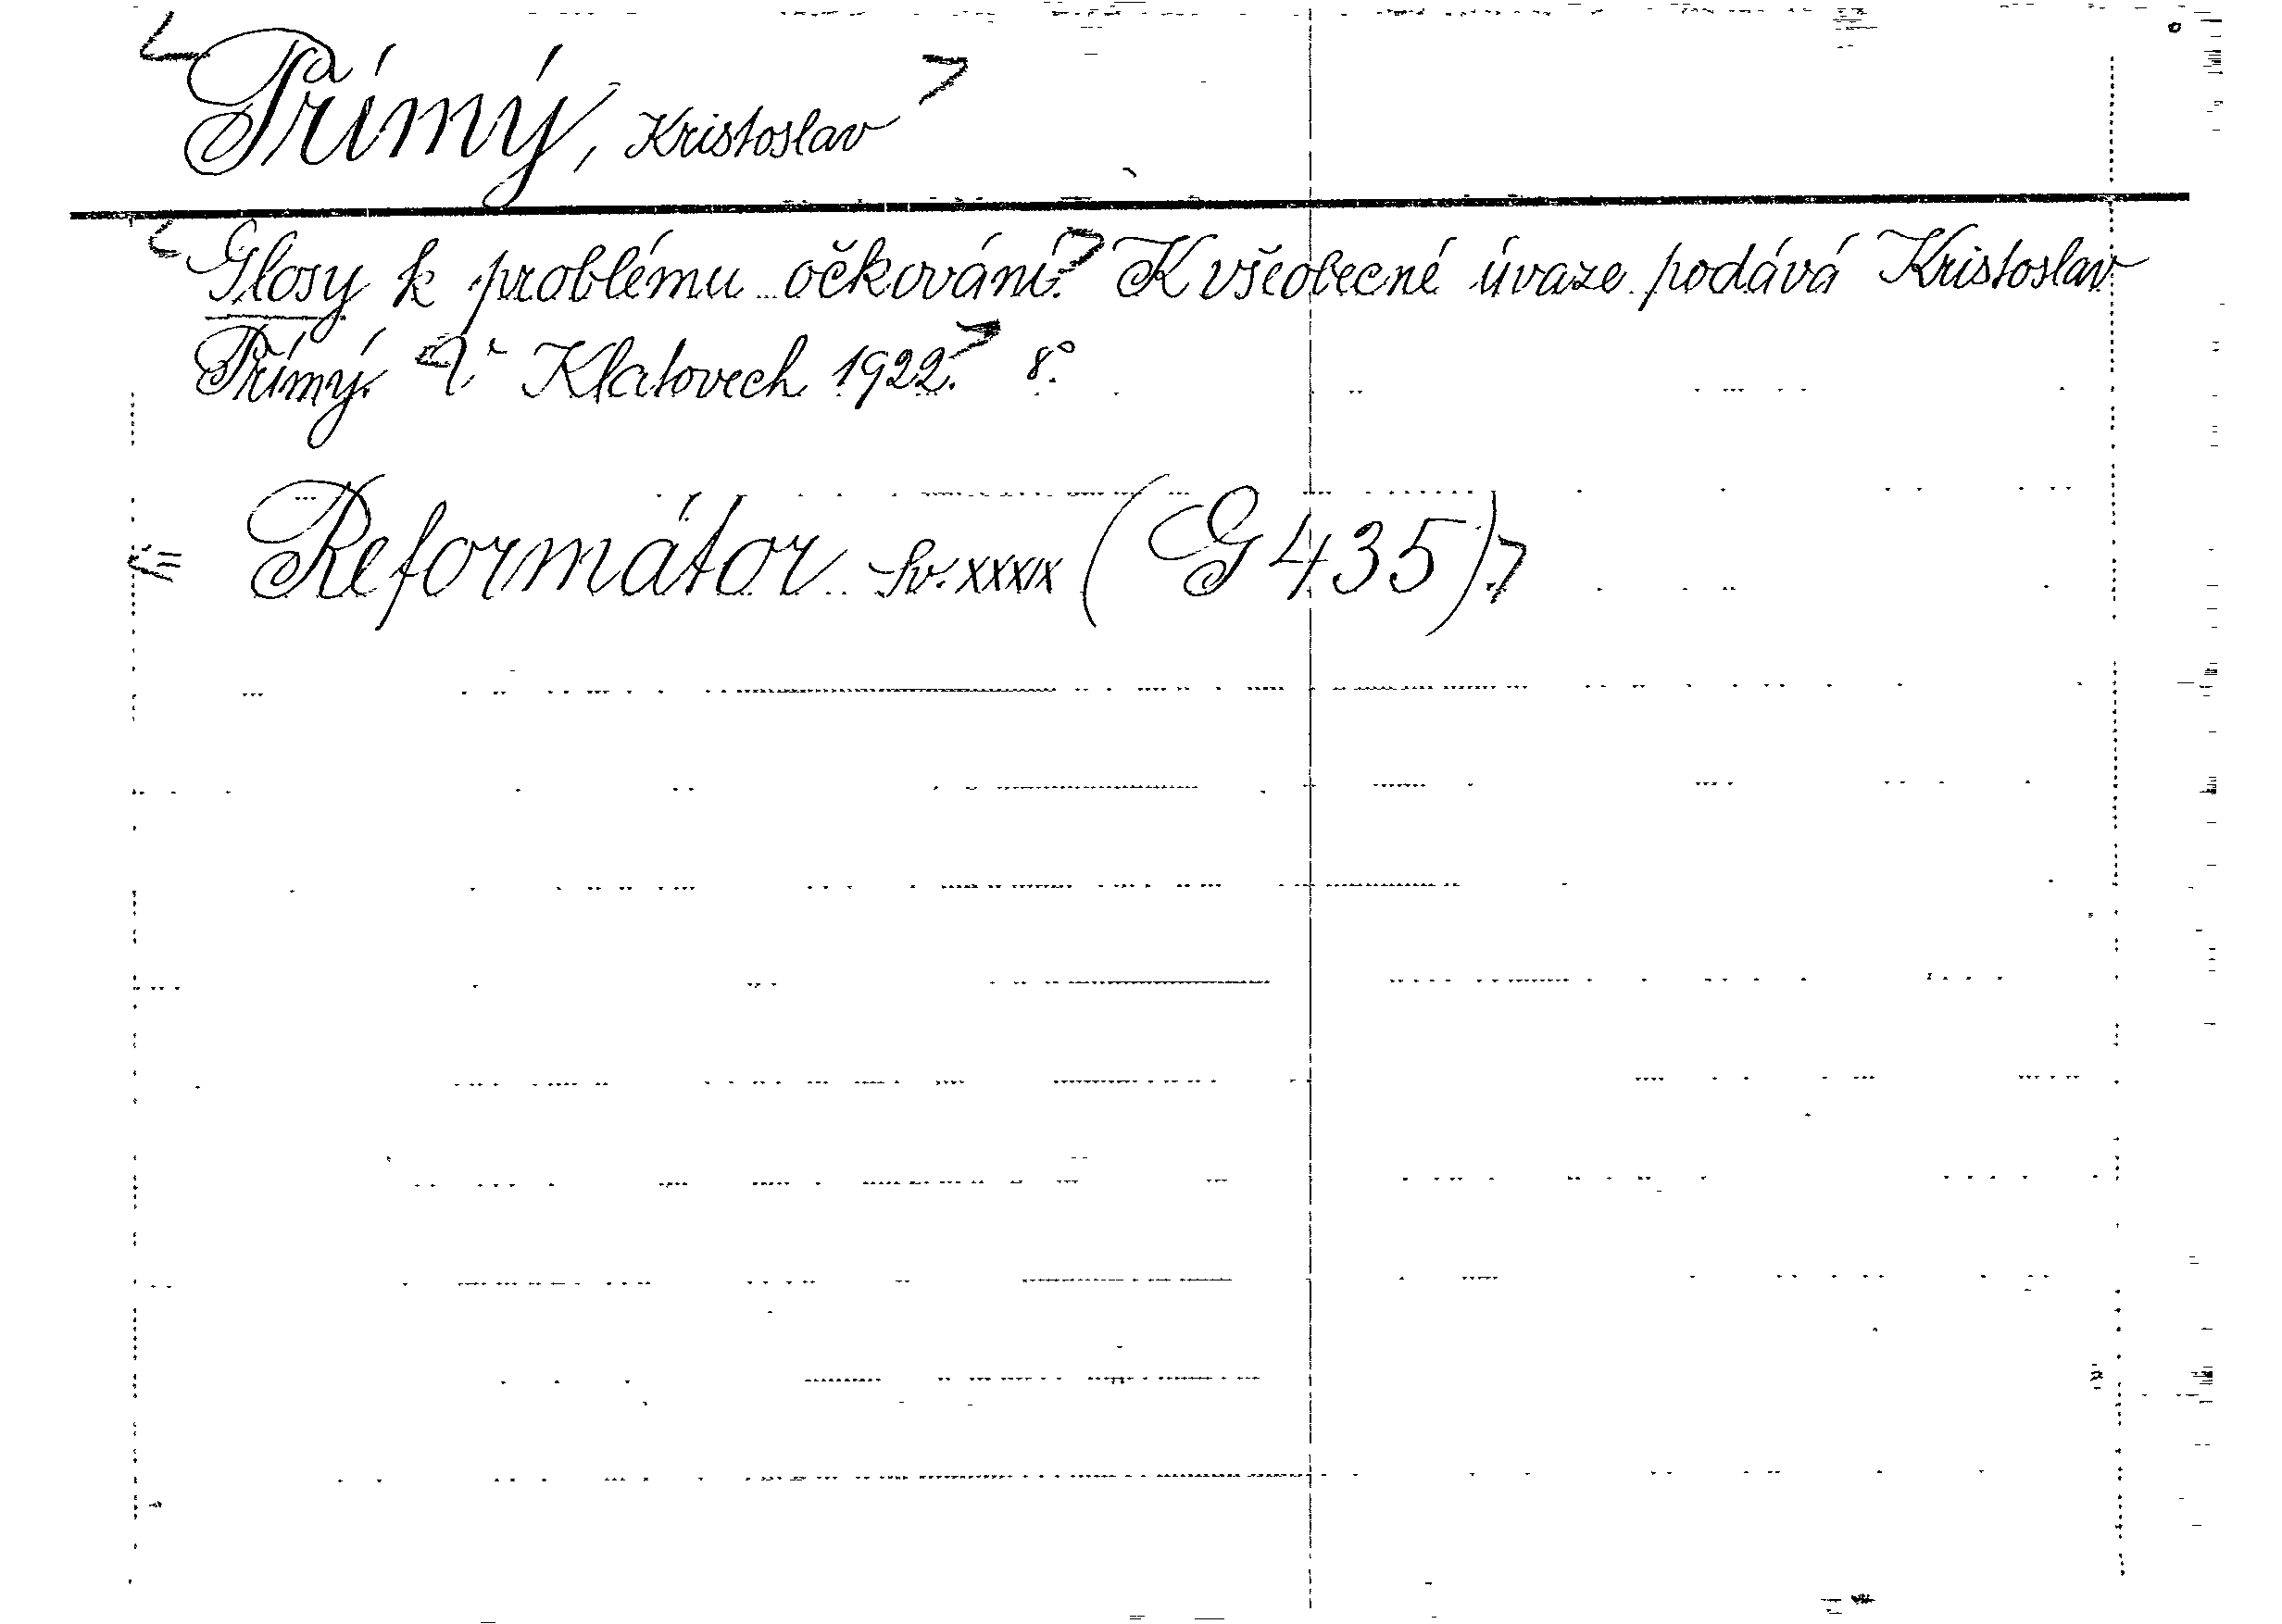 <Přímý, Kristoslav>
<Glosy k problému očkování.> K všeobecné úvaze podává Kristoslav
Přímý. <V Klatovech 1922.> 8°.
<= Reformátor Sv. XXXIX (G 435).>